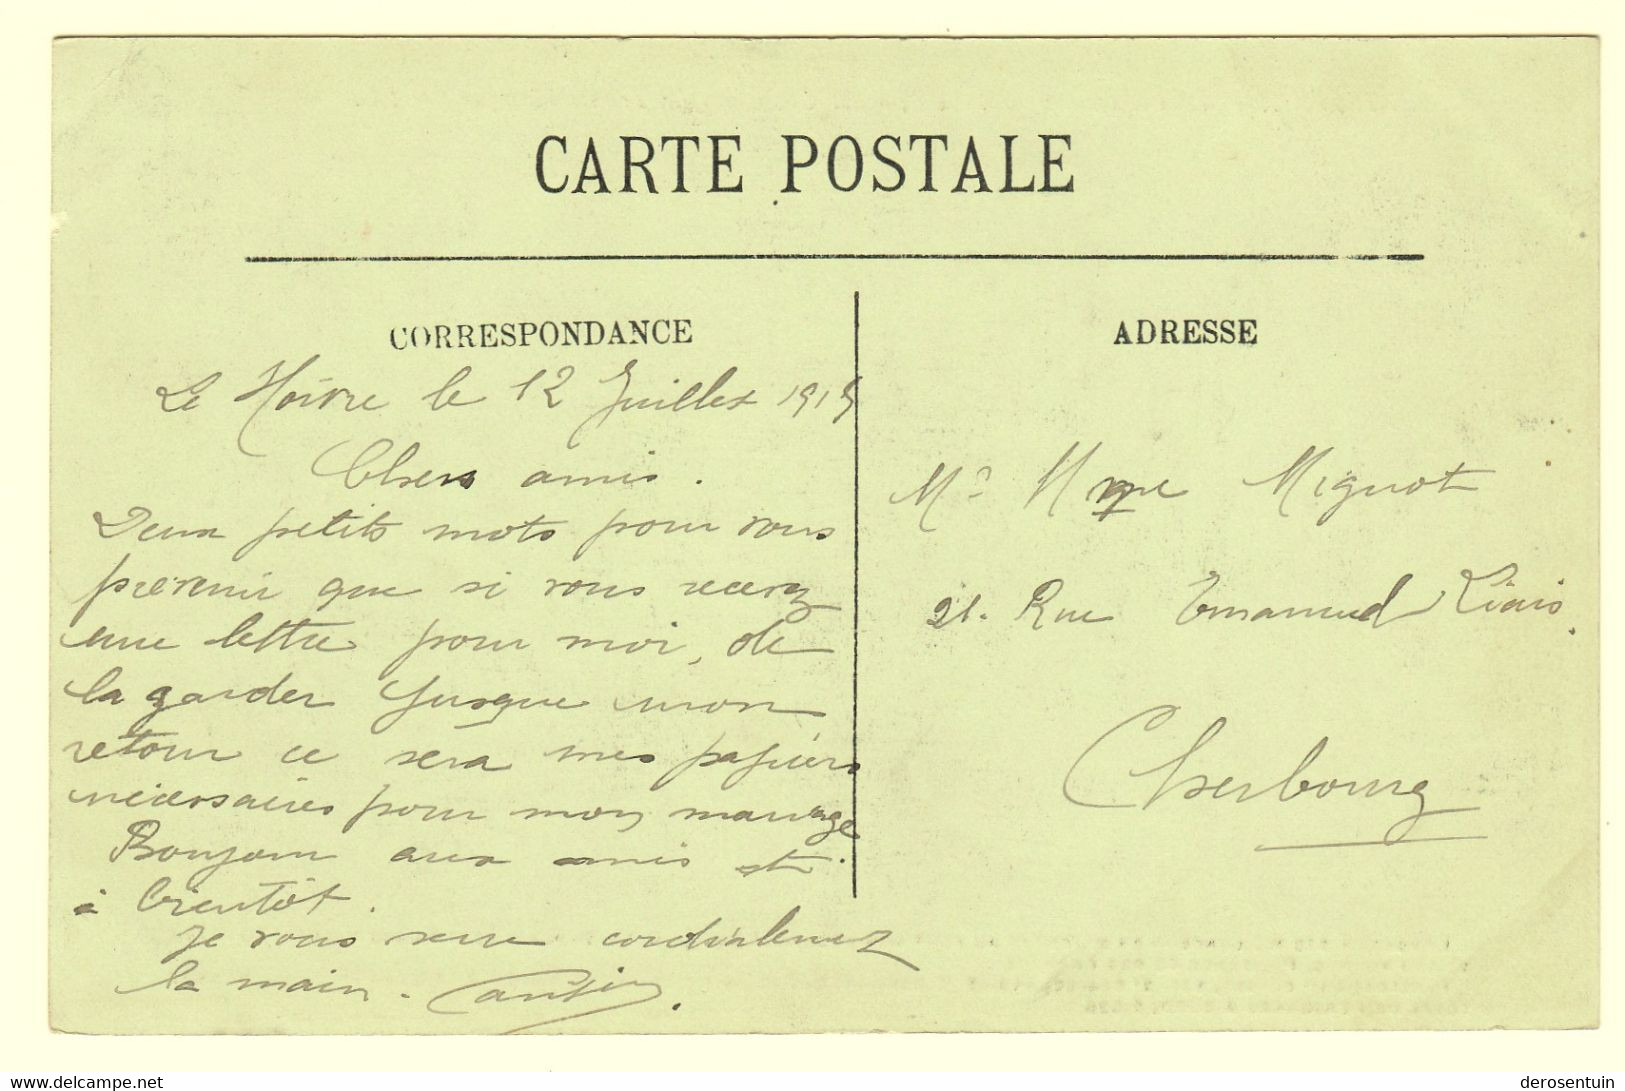 CARTE POSTALE
CORRESPONDANCE
Le Hâvre le 12 Juillet 1915
Chers amis.
Deux petits mots pour vous
prévenir que si vous recevez
une lettre pour moi, de
la garder jusque mon
retour ce sera mes papiers
nécessaires pour mon mariage
Bonjour aux amis et
à bientôt.
Je vous serre cordialement
la main.
ADRESSE
Mr Mme Mignot
21. Rue Emanuel Liais.
Cherbourg
www.delcampe.net
derosentuin